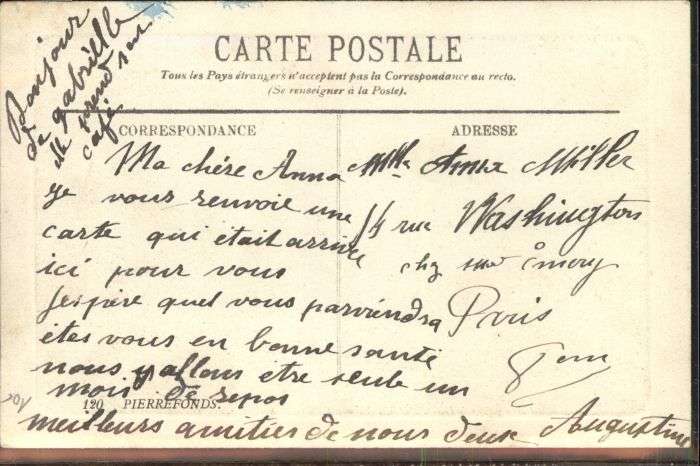 Bonjour
de gabrielle
elle prend son
café
CARTE POSTALE
Tous les Pays étrangers n'acceptent pas la Correspondance au recto.
(Se renseigner à la Poste).
CORRESPONDANCE
ADRESSE
Ma chére Anna
je vous renvoie une
carte qui était arrivée
ici pour vous
j'espère quel vous parviendra
êtes vous en bonne santé
nous allons etre seule un
mois de repos
meilleurs amitiés de nous deux Augustine
Mlle Anna Miller
14 rue Washington
chez
Paris
8em
120 PIERREFONDS.